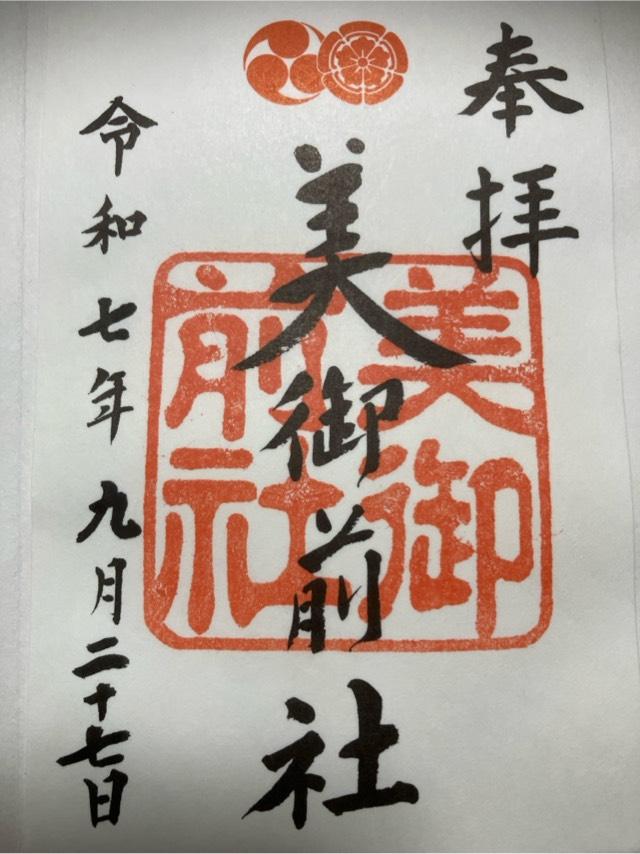 奉拝
美御前社
美御前社
令和七年九月二十七日